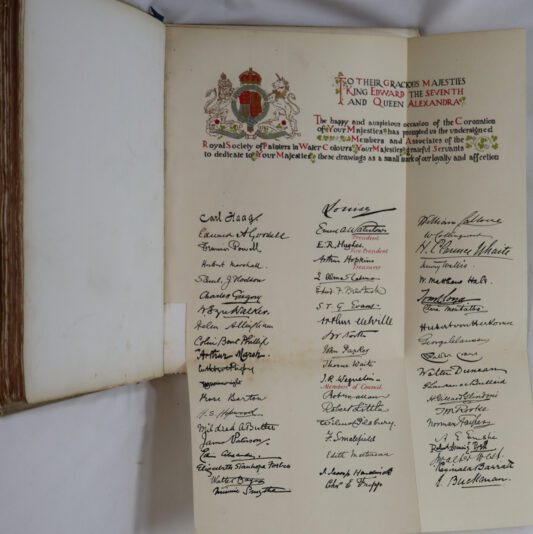 TO THEIR GRACIOUS MAJESTIES
KING EDWARD THE SEVENTH
AND QUEEN ALEXANDRA
The happy and auspicious occasion of the Coronation
of Your Majesties has prompted us the undersigned
Members and Associates of the
Royal Society of Painters in Water Colours Your Majesties' grateful Servants
to dedicate to Your Majesties these drawings as a small mark of our loyalty and affection
Carl Haag
Edward A Goodall
Francis Powell
Herbert Marshall
Samuel J Hodson
Charles Gregory
R Eyre Walker
Helen Allingham
Colin Bent Phillip
Arthur Marsh
Cuthbert Rigby
Rose Barton
Mildred A Butler
James Paterson
Elizabeth Stanhope Forbes
Walter Bayes
Minnie Smythe
Louise
Ernest A Waterlow
President
E. R. Hughes
Vice President
Arthur Hopkins
Treasurer
S. T. G. Evans
Arthur Melville
J W North
John Parker
Thorne Waite
J. R. Weguelin
Members of Council
Robert Allan
Robert Little
Wilmot Pilsbery
F. Smallfield
Edith Martineau
J. Jessop Hardwick
William Callow
W Collingwood
H. Clarence Whaite
Henry Wallis
W. Matthew Hale
Tom Lloyd
Clara Montalba
Hubert von Herkomer
George Clausen
Walter Duncan
T M Rooke
A. E. Emslie
Reginald Barratt